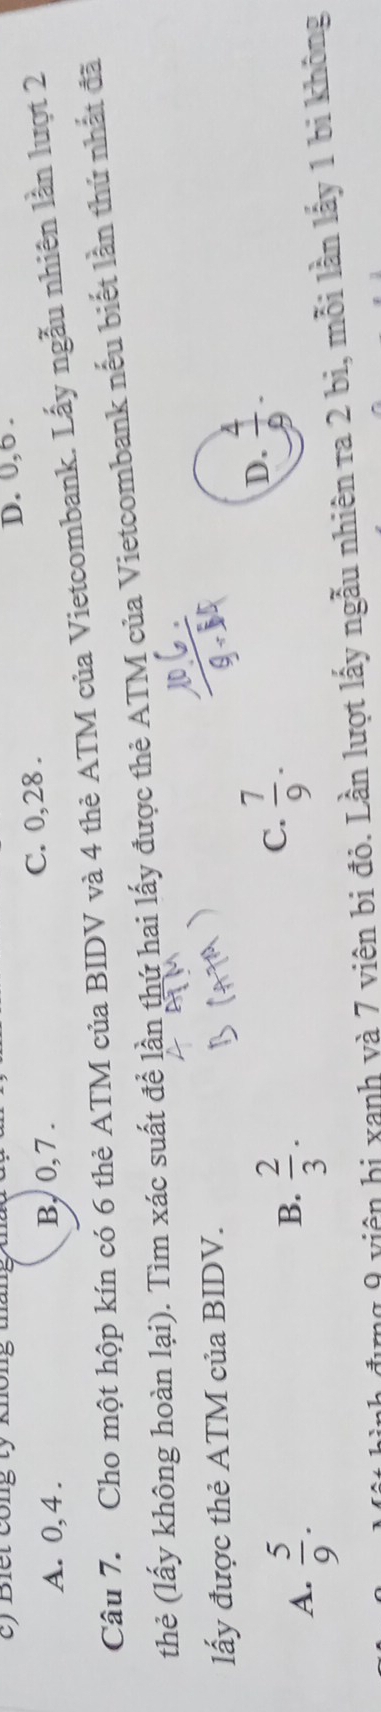 c) Biết công ty không
A. 0,4. B. 0,7. C. 0,28. D. 0,6.
Câu 7. Cho một hộp kín có 6 thẻ ATM của BIDV và 4 thẻ ATM của Vietcombank. Lấy ngẫu nhiên lần lượt 2
thẻ (lấy không hoàn lại). Tìm xác suất để lần thứ hai lấy được thẻ ATM của Vietcombank nếu biết lần thứ nhất đã
A ATM
lấy được thẻ ATM của BIDV.
B (ATM)
A. 5/9. B. 2/3. C. 7/9. D. 4/9.
Một bình đựng 9 viên bi xanh và 7 viên bi đỏ. Lần lượt lấy ngẫu nhiên ra 2 bi, mỗi lần lấy 1 bi không